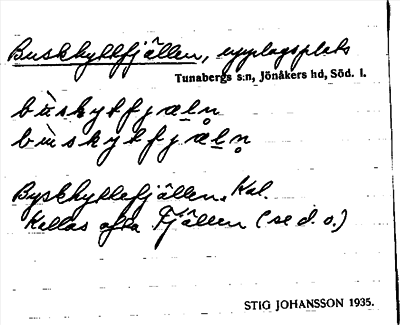 Buskhyttfjällen, upplagsplats
Tunabergs s:n, Jönåkers hd, Söd. l.
bùskytfjæl̥n̥
bùiskytfjæl̥n̥
Byskhyttefjällen. Kal.
Kallas ofta Fjällen (se d. o.)
STIG JOHANSSON 1935.